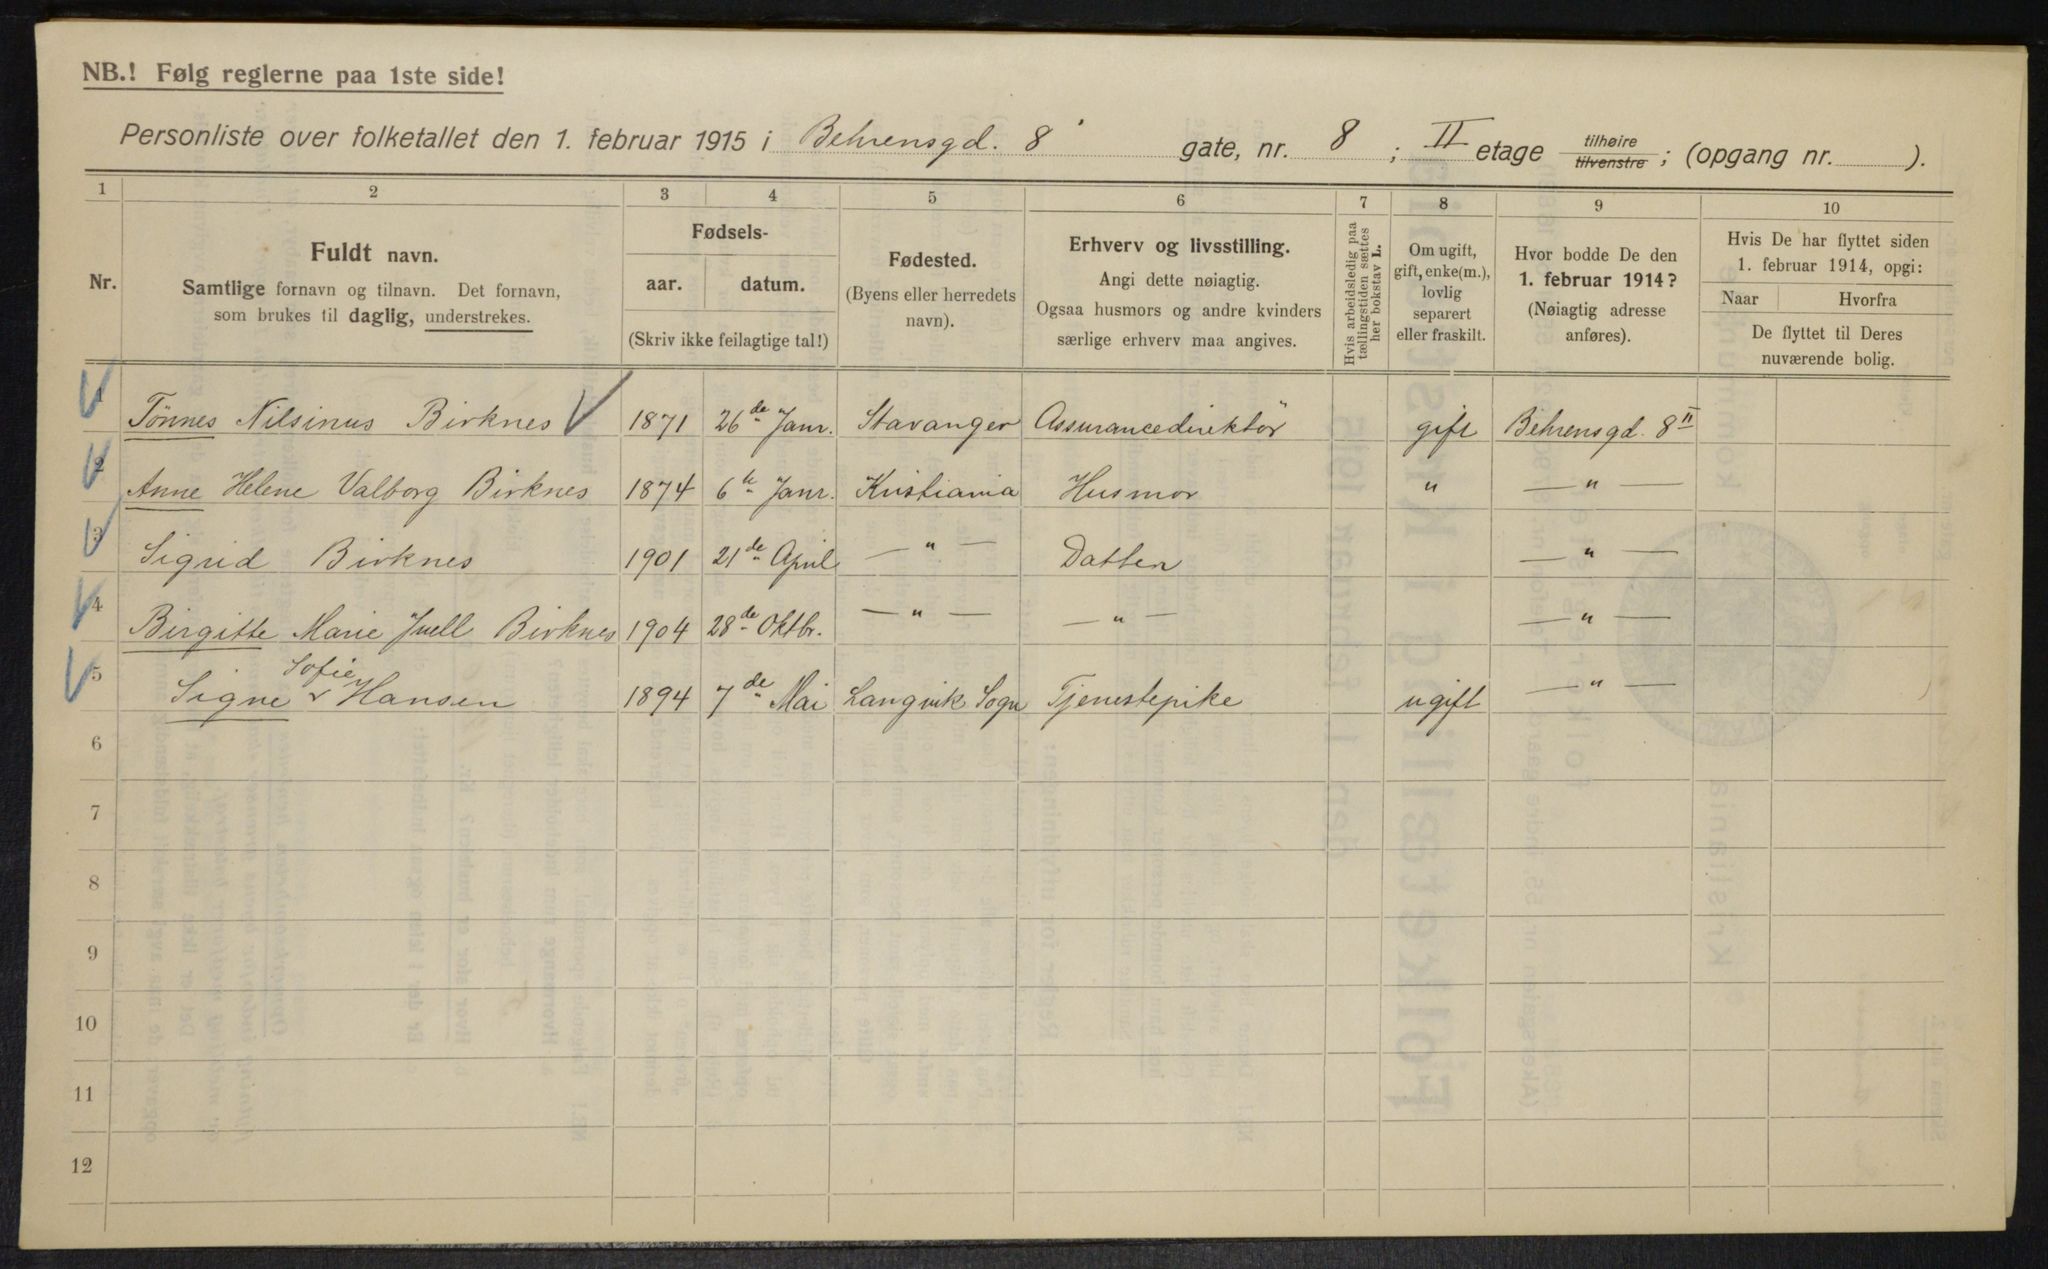 NB.! Følg reglerne paa 1ste side!
Personliste over folketallet den 1. februar 1915 i Behrensgd. 8 gate, nr. 8 ; II etage tilhøire tilvenstre ; (opgang nr. ).
1 2 3 4 5 6 7 8 9 10
Nr.
Fuldt navn.
Samtlige fornavn og tilnavn. Det fornavn,
som brukes til daglig, understrekes.
Fødsels-
aar. datum.
(Skriv ikke feilagtige tal!)
Fødested.
(Byens eller herredets
navn).
Erhverv og livsstilling.
Angi dette nøiagtig.
Ogsaa husmors og andre kvinders
særlige erhverv maa angives.
Hvis arbeidsledig paa
tællingstiden sættes
her bokstav L.
Om ugift,
gift, enke(m.),
lovlig
separert
eller fraskilt.
Hvor bodde De den
1. februar 1914?
(Nøiagtig adresse
anføres).
Hvis De har flyttet siden
1. februar 1914, opgi:
Naar Hvorfra
De flyttet til Deres
nuværende bolig.
1 Tønnes Nilsinus Birknes 1871 26de Janr. Stavanger Assurancedirektør gift Behrensgd. 8 II
2 Anne Helene Valborg Birknes 1874 6te Janr. Kristiania Husmor " — " —
3 Sigrid Birknes 1901 21de April — " — Datter — " —
4 Birgitte Marie Juell Birknes 1904 28de Oktbr. — " — — " — — " —
5 Signe Sofie Hansen 1894 7de Mai Langvik Sogn Tjenestepike ugift — " —
6
7
8
9
10
11
12